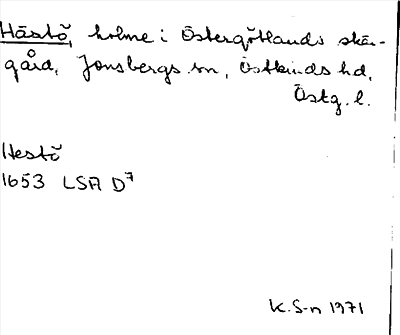 Hästö, holme i Östergötlands skär-
gård, Jonsbergs sn, Östkinds hd,
Östg. l.
Hestö
1653 LSA D7
K.S-n 1971